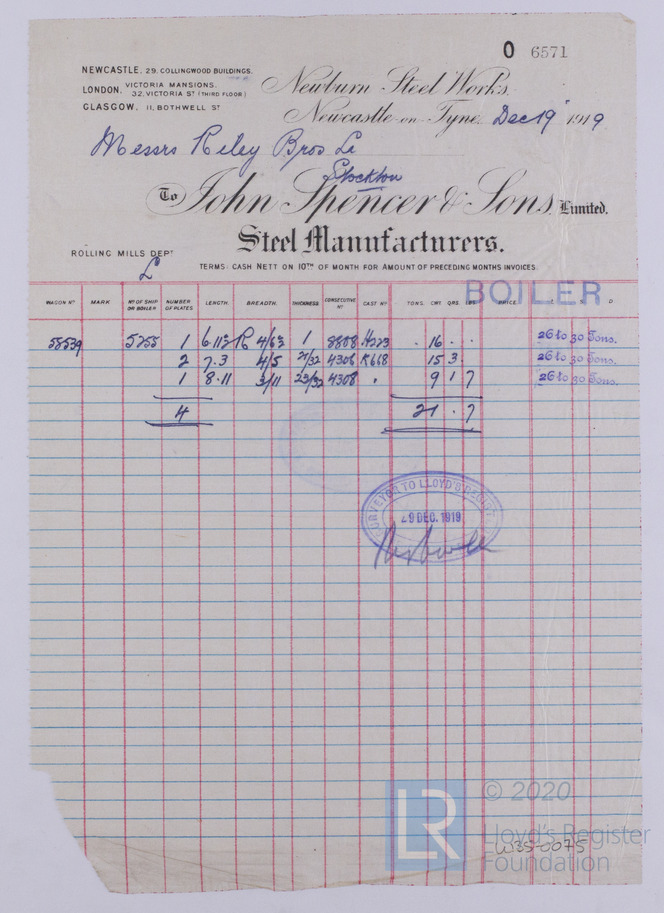 O 6571
NEWCASTLE. 29. COLLINGWOOD BUILDINGS.
LONDON. VICTORIA MANSIONS. 32, VICTORIA ST (THIRD FLOOR)
GLASGOW. 11, BOTHWELL ST
Newburn Steel Works.
Newcastle-on-Tyne. Dec 19 1919
Messrs Riley Bros Ld
Stockton
To John Spencer & Sons, Limited.
Steel Manufacturers.
ROLLING MILLS DEPT
TERMS: CASH NETT ON 10TH OF MONTH FOR AMOUNT OF PRECEDING MONTHS INVOICES.
BOILER
WAGON NO MARK NO OF SHIP OR BOILER NUMBER OF PLATES LENGTH. BREADTH. THICKNESS CONSECUTIVE NO CAST NO TONS. CWT QRS. LBS PRICE. £ S D
55539 5255 1 6.11½ R 4/6½ 1 8808 H223 . 16 . . 26 to 30 Tons.
2 7.3 4/5 21/32 4306 K668 15 3 . 26 to 30 Tons.
1 8.11 3/11 23/32 4308 " 9 1 7 26 to 30 Tons.
4 21 . 7
SURVEYOR TO LLOYD'S REGISTER
29 DEC. 1919
LR
© 2020
Lloyd's Register
Foundation
W35-0075